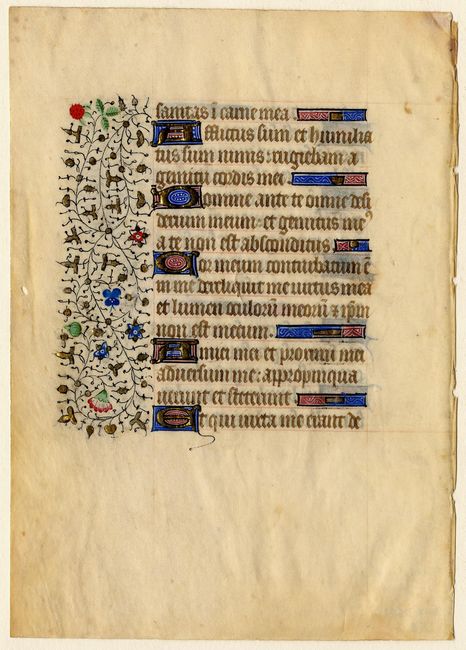 sanitas i carne mea.
Afflictus sum et humilia
tus sum nimis: rugiebam a
gemitu cordis mei.
Domine ante te omne desi
derium meum: et gemitus me⁹
a te non est absconditus
Cor meum conturbatum ē
in me dereliquit me virtus mea
et lumen oculorū meorū ⁊ ip̄m
non est mecum.
Amici mei et proximi mei
adversum me: appropinqua
verunt et steterunt
Et qui iuxta me erant de